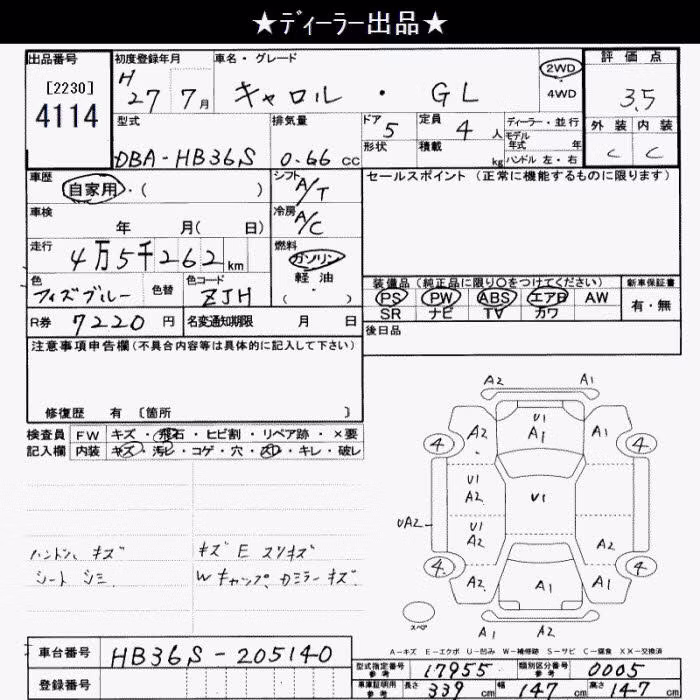 ★ディーラー出品★
出品番号 初度登録年月 車名・グレード 評価点
[2230]
4114
H27 7月 キャロル・GL 2WD 4WD 3.5
型式 排気量 ドア 5 定員 4人 ディーラー・並行 外装 内装
モデル年式 年
DBA-HB36S 0.66 cc 形状 積載 kg ハンドル 左・右 C C
車歴 自家用・( ) シフト A/T セールスポイント (正常に機能するものに限ります)
車検 年 月( 日) 冷房 A/C
走行 4万5千262km 燃料 ガソリン 軽油 ( )
色 フィズブルー 色替 色コード ZJH
装備品 (純正品に限り○をつけてください) 新車保証書
PS PW ABS エアB AW 有・無
SR ナビ TV カワ
R券 7220円 名変通知期限 月 日 後日品
注意事項申告欄(不具合内容等は具体的に記入して下さい)
修復歴 有 [箇所 ]
検査員 FW キズ・飛石・ヒビ割・リペア跡・×要
記入欄 内装 キズ・汚れ・コゲ・穴・スレ・キレ・破レ
A2 A1
A2 U1 A1 A1
4 4
U1 A2 U1
UA2 U1 A2 A2
4 4
A2 A1 A1
A2 A2
スペア
ハンドル キズ キズ E スリキズ
シート シミ W キャップ、カミラー キズ
A-キズ E-エクボ U-凹み W-補修跡 S-サビ C-腐食 XX-交換済
車台番号 HB36S-205140
登録番号
型式指定番号 参考 17955 類別区分番号 参考 0005
車庫証明用 参考 長さ 339 cm 幅 147 cm 高さ 147 cm